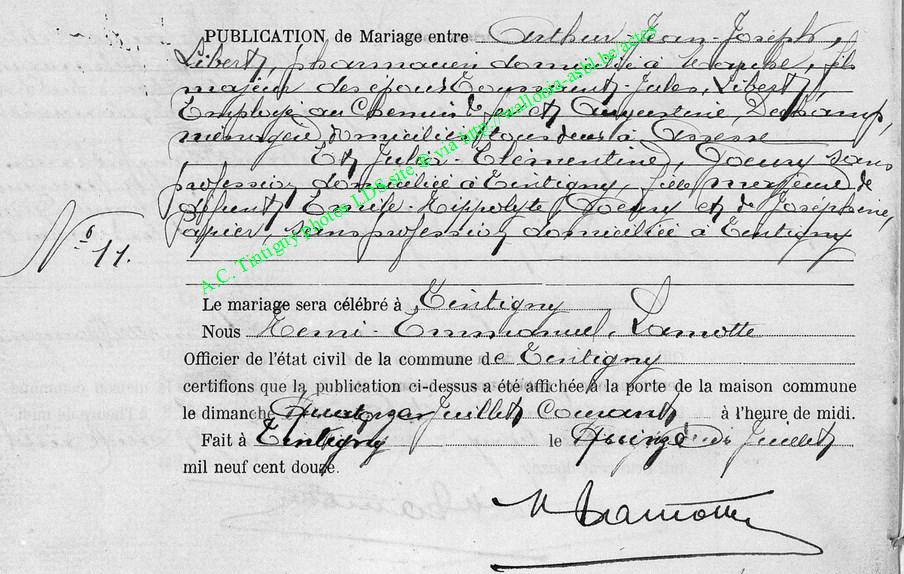 PUBLICATION de Mariage entre Arthur-Jean-Joseph,
Libert, pharmacien domicilié à, fils
majeur des époux-Jules, Libert,
Employé au Chemin de fer et Augustine,
ménagère domiciliés tous deux à Assesse
Et Julie-Clémentine, Goeury sans
profession domiciliée à Tintigny, fille majeure de
défunt Emile-Hippolyte, Goeury et de Joséphine,
sans profession domiciliée à Tintigny
N° 11.
Le mariage sera célébré à Tintigny
Nous Henri-Emmanuel, Lamotte
Officier de l'état civil de la commune de Tintigny
certifions que la publication ci-dessus a été affichée à la porte de la maison commune
le dimanche quatorze Juillet Courant à l'heure de midi.
Fait à Tintigny le quinze Juillet
mil neuf cent douze.
H Lamotte
A.C. Tintigny Photos LDS site © via http://wallonia-asbl.be/actes